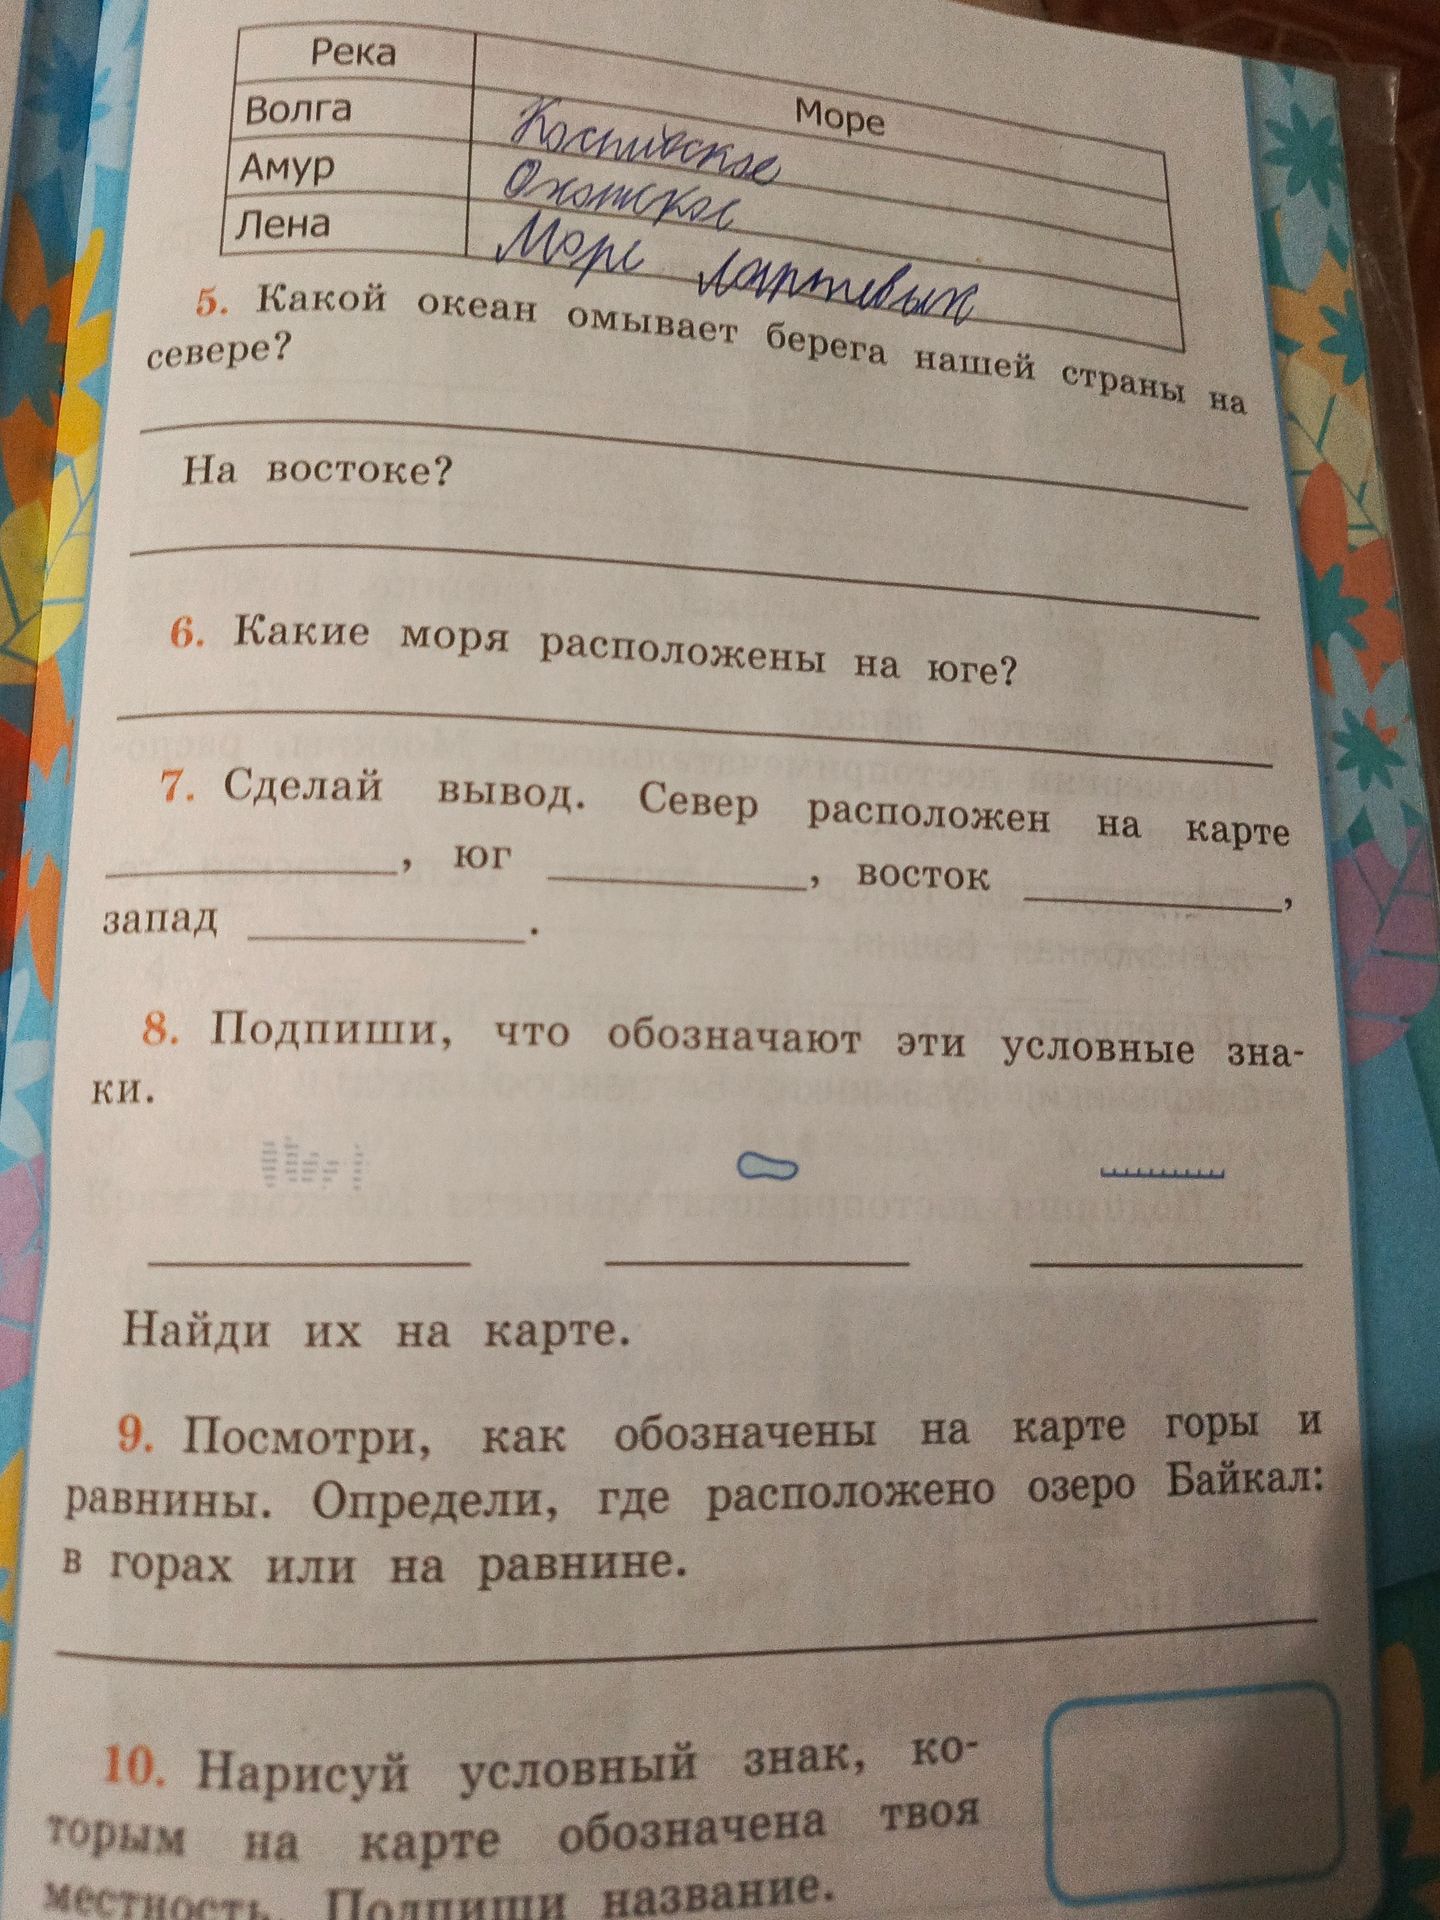 Река Море
Волга Каспийское
Амур Охотское
Лена Море лаптевых
5. Какой океан омывает берега нашей страны на
севере?
На востоке?
6. Какие моря расположены на юге?
7. Сделай вывод. Север расположен на карте
, юг , восток ,
запад .
8. Подпиши, что обозначают эти условные зна-
ки.
Найди их на карте.
9. Посмотри, как обозначены на карте горы и
равнины. Определи, где расположено озеро Байкал:
в горах или на равнине.
10. Нарисуй условный знак, ко-
торым на карте обозначена твоя
местность. Подпиши название.